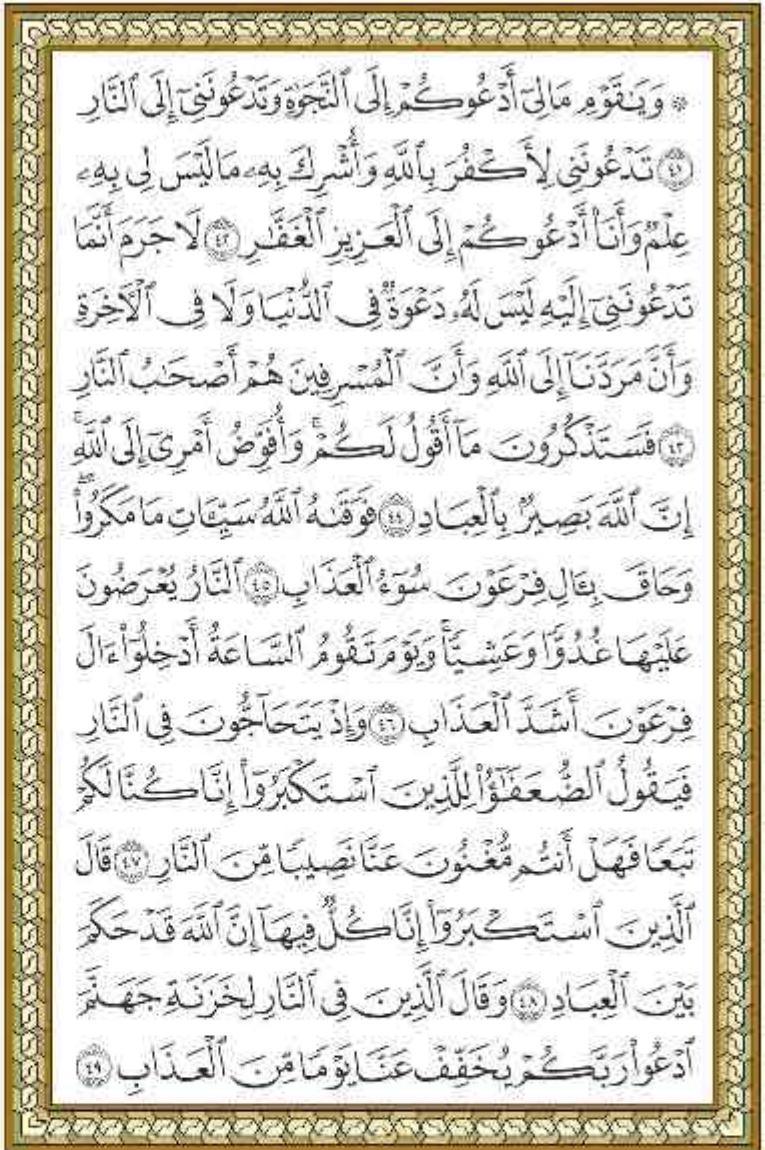 ۞ وَيَٰقَوۡمِ مَا لِيٓ أَدۡعُوكُمۡ إِلَى ٱلنَّجَوٰةِ وَتَدۡعُونَنِيٓ إِلَى ٱلنَّارِ
٤١ تَدۡعُونَنِي لِأَكۡفُرَ بِٱللَّهِ وَأُشۡرِكَ بِهِۦ مَا لَيۡسَ لِي بِهِۦ
عِلۡمٞ وَأَنَا۠ أَدۡعُوكُمۡ إِلَى ٱلۡعَزِيزِ ٱلۡغَفَّٰرِ ٤٢ لَا جَرَمَ أَنَّمَا
تَدۡعُونَنِيٓ إِلَيۡهِ لَيۡسَ لَهُۥ دَعۡوَةٞ فِي ٱلدُّنۡيَا وَلَا فِي ٱلۡأٓخِرَةِ
وَأَنَّ مَرَدَّنَآ إِلَى ٱللَّهِ وَأَنَّ ٱلۡمُسۡرِفِينَ هُمۡ أَصۡحَٰبُ ٱلنَّارِ
٤٣ فَسَتَذۡكُرُونَ مَآ أَقُولُ لَكُمۡۚ وَأُفَوِّضُ أَمۡرِيٓ إِلَى ٱللَّهِۚ
إِنَّ ٱللَّهَ بَصِيرُۢ بِٱلۡعِبَادِ ٤٤ فَوَقَىٰهُ ٱللَّهُ سَيِّـَٔاتِ مَا مَكَرُواْۖ
وَحَاقَ بِـَٔالِ فِرۡعَوۡنَ سُوٓءُ ٱلۡعَذَابِ ٤٥ ٱلنَّارُ يُعۡرَضُونَ
عَلَيۡهَا غُدُوّٗا وَعَشِيّٗاۚ وَيَوۡمَ تَقُومُ ٱلسَّاعَةُ أَدۡخِلُوٓاْ ءَالَ
فِرۡعَوۡنَ أَشَدَّ ٱلۡعَذَابِ ٤٦ وَإِذۡ يَتَحَآجُّونَ فِي ٱلنَّارِ
فَيَقُولُ ٱلضُّعَفَٰٓؤُاْ لِلَّذِينَ ٱسۡتَكۡبَرُوٓاْ إِنَّا كُنَّا لَكُمۡ
تَبَعٗا فَهَلۡ أَنتُم مُّغۡنُونَ عَنَّا نَصِيبٗا مِّنَ ٱلنَّارِ ٤٧ قَالَ
ٱلَّذِينَ ٱسۡتَكۡبَرُوٓاْ إِنَّا كُلّٞ فِيهَآ إِنَّ ٱللَّهَ قَدۡ حَكَمَ
بَيۡنَ ٱلۡعِبَادِ ٤٨ وَقَالَ ٱلَّذِينَ فِي ٱلنَّارِ لِخَزَنَةِ جَهَنَّمَ
ٱدۡعُواْ رَبَّكُمۡ يُخَفِّفۡ عَنَّا يَوۡمٗا مِّنَ ٱلۡعَذَابِ ٤٩